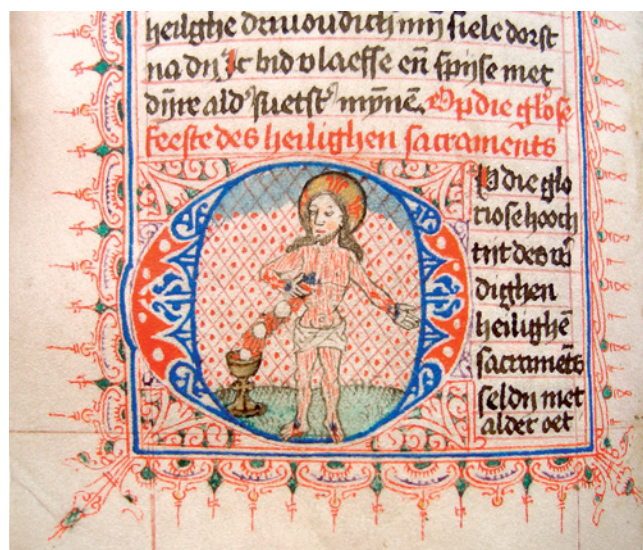 heilighe drivoudich mij siele dorst
na dij Ic bid v laesse en̄ spijse met
dijre ald' suetst' mijnē. Op die glose
feeste des heilighen sacraments
Op die glo
riose hooch
tijt des
dighen
heilighē
sacramēts
seldij met
alder oet